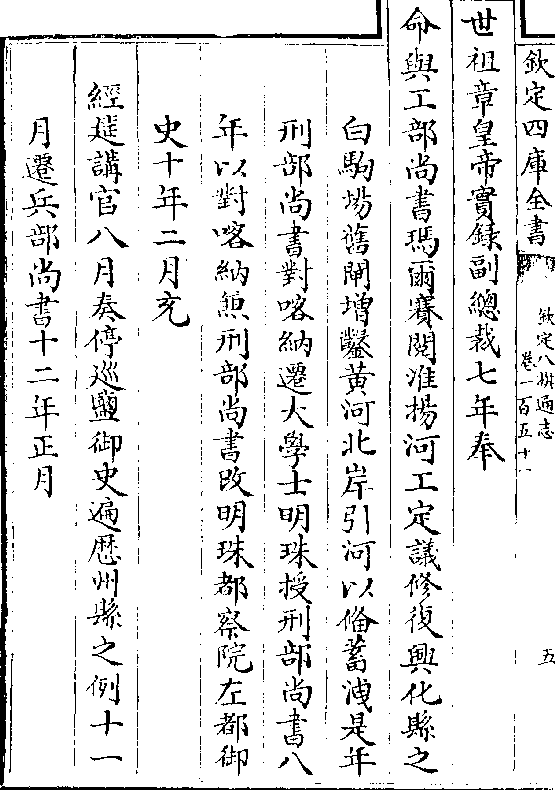 欽定四庫全書
欽定八旗通志
卷一百五十一
五
世祖章皇帝實錄副總裁七年奉
命與工部尚書瑪爾賽閱淮揚河工定議修復興化縣之
白駒場舊閘增鑿黃河北岸引河以備蓄洩是年
刑部尚書對喀納遷大學士明珠授刑部尚書八
年以對喀納兼刑部尚書改明珠都察院左都御
史十年二月充
經筵講官八月奏停巡鹽御史遍歷州縣之例十一
月遷兵部尚書十二年正月